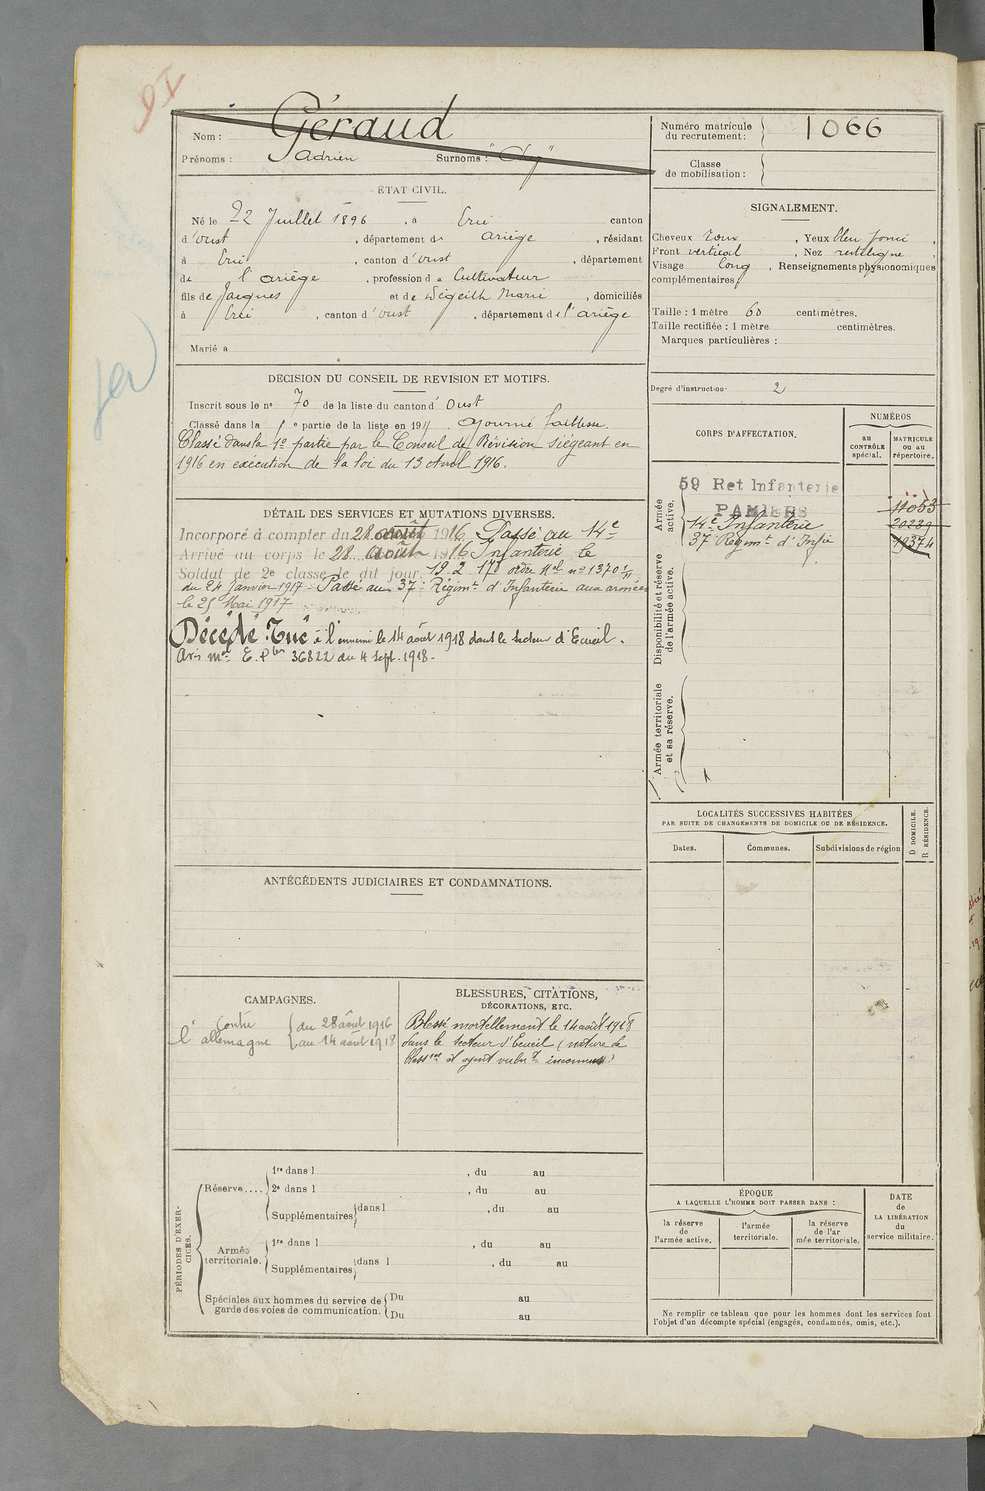 Géraud
Nom :
Prénoms : Adrien Surnoms :
Numéro matricule
du recrutement : 1066
Classe
de mobilisation :
ÉTAT CIVIL.
Né le 22 Juillet 1896, à Ercé canton
d'Oust, département de Ariège, résidant
à Ercé, canton d'Oust, département
de l'Ariège, profession de Cultivateur
fils de Jacques et de Dégeilh Marie, domiciliés
à Ercé, canton d'Oust, département de l'Ariège
Marié à
SIGNALEMENT.
Cheveux, Yeux bleu foncé,
Front vertical, Nez rectiligne,
Visage long, Renseignements physionomiques
complémentaires
Taille : 1 mètre 60 centimètres.
Taille rectifiée : 1 mètre centimètres.
Marques particulières :
Degré d'instruction. 2
DÉCISION DU CONSEIL DE RÉVISION ET MOTIFS.
Inscrit sous le n° 70 de la liste du canton d'Oust
Classé dans la partie de la liste en 191 Ajourné faiblesse.
Classé dans la 1e partie par le Conseil de Révision siégeant en
1916 en exécution de la loi du 13 Avril 1916.
CORPS D'AFFECTATION.
NUMÉROS
AU
CONTRÔLE
spécial.
MATRICULE
ou au
répertoire.
Armée
active.
59 Ret Infanterie
PAMIERS
14e Infanterie
37e Régimt d'Infie
11053
20239
19374
Disponibilité et réserve
de l'armée active.
Armée territoriale
et sa réserve.
DÉTAIL DES SERVICES ET MUTATIONS DIVERSES.
Incorporé à compter du 28 août 1916. Passé au 14e
Arrivé au corps le 28 août 1916 Infanterie le
Soldat de 2e classe le dit jour. 19.2.17 ordre Mel n° 1370
du 24 Janvier 1917 - Passé au 37e Régimt d'Infanterie aux armées
le 25 Mai 1917
Décédé Tué à l'ennemi le 14 août 1918 dans le secteur d'Ecueil.
Avis mel E.Pber 36822 du 4 Sept. 1918.-
LOCALITÉS SUCCESSIVES HABITÉES
PAR SUITE DE CHANGEMENTS DE DOMICILE OU DE RÉSIDENCE.
Dates.
Communes.
Subdivisions de région
D DOMICILE.
R RÉSIDENCE.
ANTÉCÉDENTS JUDICIAIRES ET CONDAMNATIONS.
CAMPAGNES.
Contre du 28 août 1916
l'allemagne au 14 août 1918
BLESSURES, CITATIONS,
DÉCORATIONS, ETC.
Blessé mortellement le 14 août 1918
dans le secteur d'Ecueil (nature de
et agent vulnt inconnus)
PÉRIODES D'EXERCICES.
Réserve....
1re dans l , du au
2e dans l , du au
Supplémentaires dans l , du au
Armée
territoriale.
1re dans l , du au
Supplémentaires dans l , du au
Spéciales aux hommes du service de
garde des voies de communication.
Du au
Du au
ÉPOQUE
A LAQUELLE L'HOMME DOIT PASSER DANS :
la réserve
de
l'armée active.
l'armée
territoriale.
la réserve
de l'ar
mée territoriale.
DATE
de
LA LIBÉRATION
du
service militaire.
Ne remplir ce tableau que pour les hommes dont les services font
l'objet d'un décompte spécial (engagés, condamnés, omis, etc.).